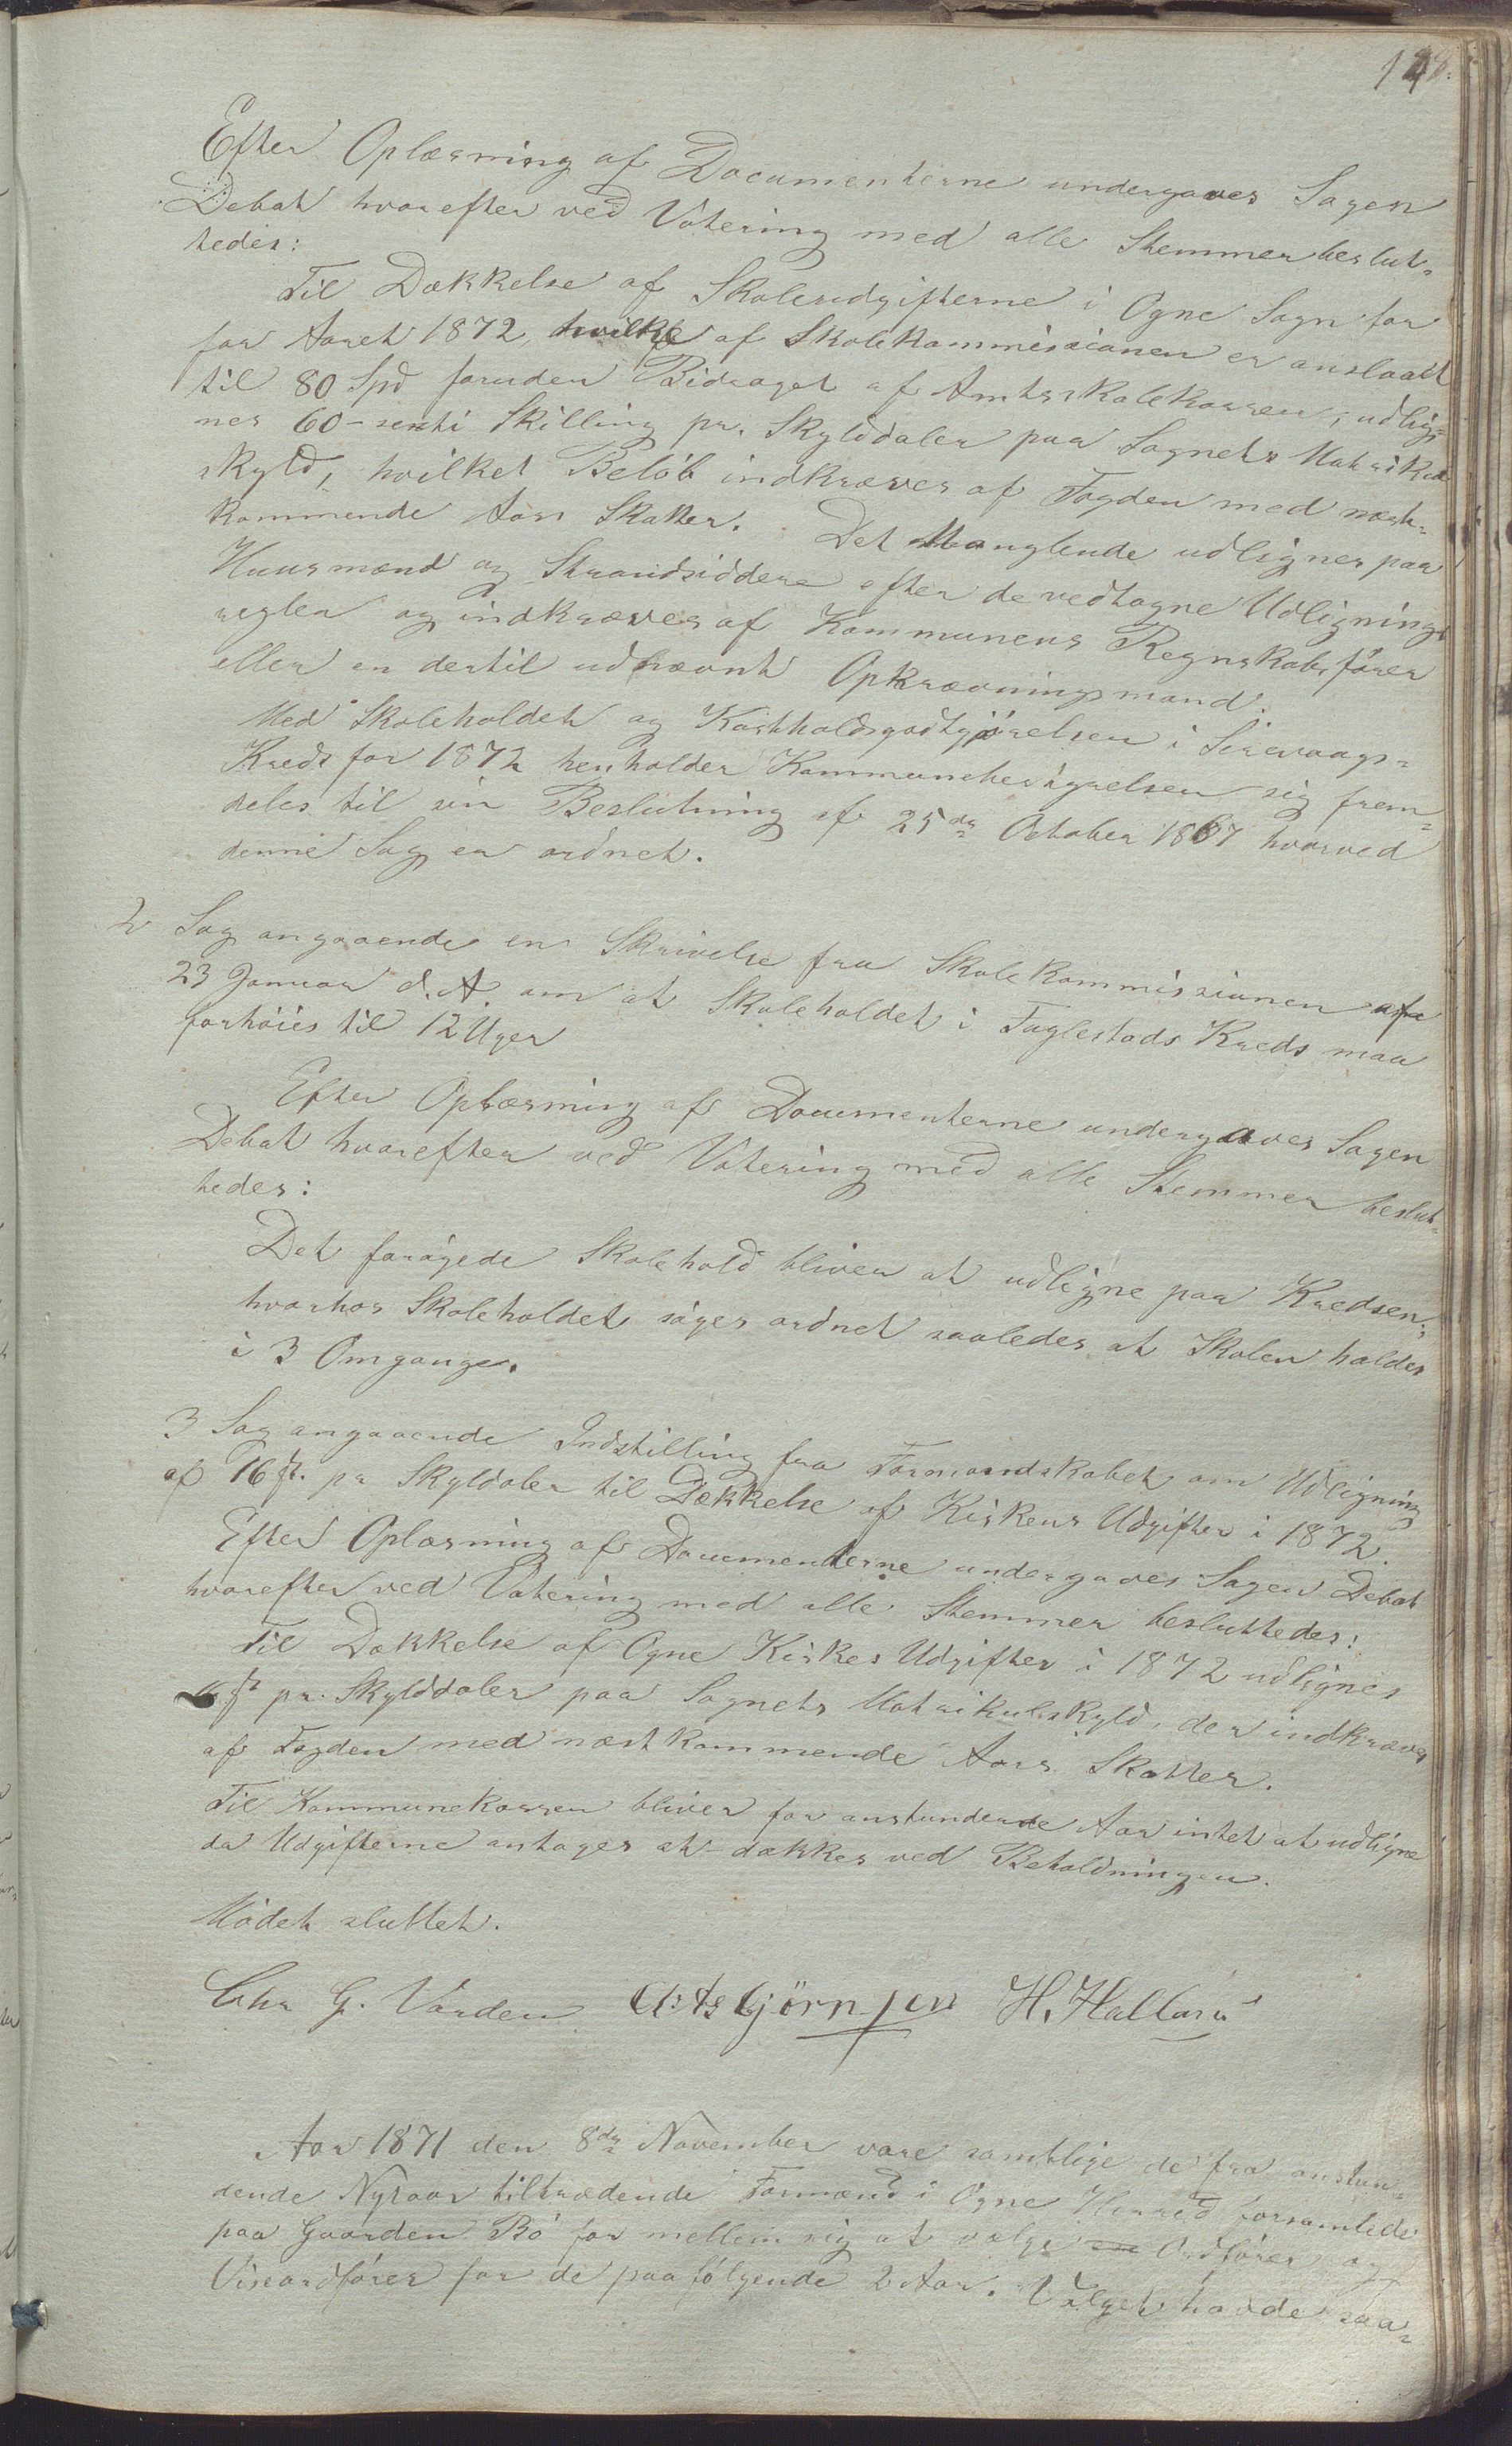 Efter Oplæsning af Documenterne undergaves Sagen
Debat hvorefter ved Votering med alle Stemmer beslut-
tedes:
Til Dækkelse af Skoleudgifterne i Ogne Sogn for
for Aaret 1872, hvilke af Skolekommissionen er anslaaet
til 80 Spd foruden Bidraget af Amtsskolekassen, udlig-
nes 60 - sexti Skilling pr. Skylddaler paa Sognets Matrikul
skyld, hvilket Beløb indkræves af Fogden med næst-
kommende Aars Skatter. Det Manglende udlignes paa
Huusmænd og Strandsiddere efter de vedtagne Udlignings
regler og indkræves af Kommunens Regnskabsfører
eller en dertil udnævnt Opkrævningsmand.
Med Skoleholdet og Kostholdsgodtgjørelsen i Sirevaags-
Kreds for 1872 henholder Kommunebestyrelsen sig frem-
deles til sin Beslutning af 25de October 1867 hvorved
denne Sag er ordnet.
2 Sag angaaende en Skrivelse fra Skolekommissionen af
23 Januar d. A. om at Skoleholdet i Fuglestads Kreds maa
forhøies til 12 Uger
Efter Oplæsning af Documenterne undergaves Sagen
Debat hvorefter ved Votering med alle Stemmer beslut-
tedes:
Det forøgede Skolehold bliver at udligne paa Kredsen;
hvorhos Skoleholdet søges ordnet saaledes at Skolen holdes
i 3 Omgange.
3 Sag angaaende Indstilling fra Formandskabet om Udligning
af 16 ß. pr Skyldaler til Dækkelse af Kirkens Udgifter i 1872.
Efter Oplæsning af Documenterne undergaves Sagen Debat
hvorefter ved Votering med alle Stemmer besluttedes:
Til Dækkelse af Ogne Kirkes Udgifter i 1872 udlignes
ß pr. Skylddaler paa Sognets Matrikulskyld, der indkræves
af Fogden med næstkommende Aars Skatter.
Til Kommunekassen bliver for anstundende Aar intet at udligne
da Udgifterne antages at dækkes ved Beholdningen.
Mødet sluttet.
Chr G. Varden A: Asbjörnsen H. Hallarin
Aar 1871 den 8de November vare samtlige de fra anstun-
dende Nytaar tiltrædende Formænd i Ogne Herred forsamlede
paa Gaarden Bø for mellem sig at vælge Ordfører og
Viseordfører for de paafølgende 2 Aar. Valget havde saa-